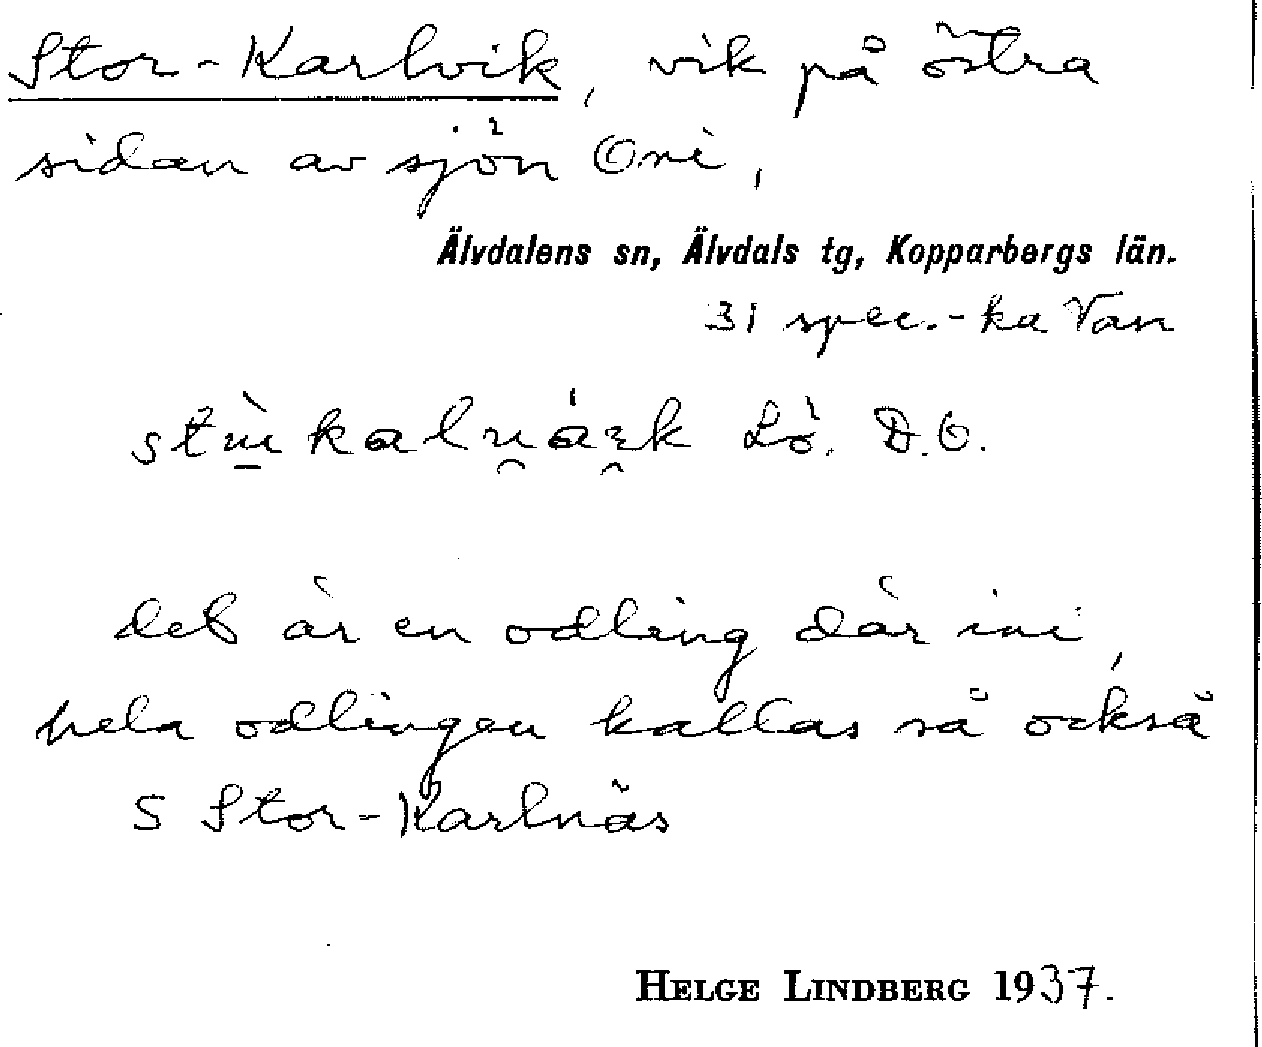 Stor-Karlvik, vik på östra
sidan av sjön Oni,
Älvdalens sn, Älvdals tg, Kopparbergs län.
31 spec.-ka Van
Lö. D.O.
det är en odling där ini,
hela odlingen kallas så också
S Stor-Karlnäs
HELGE LINDBERG 1937.